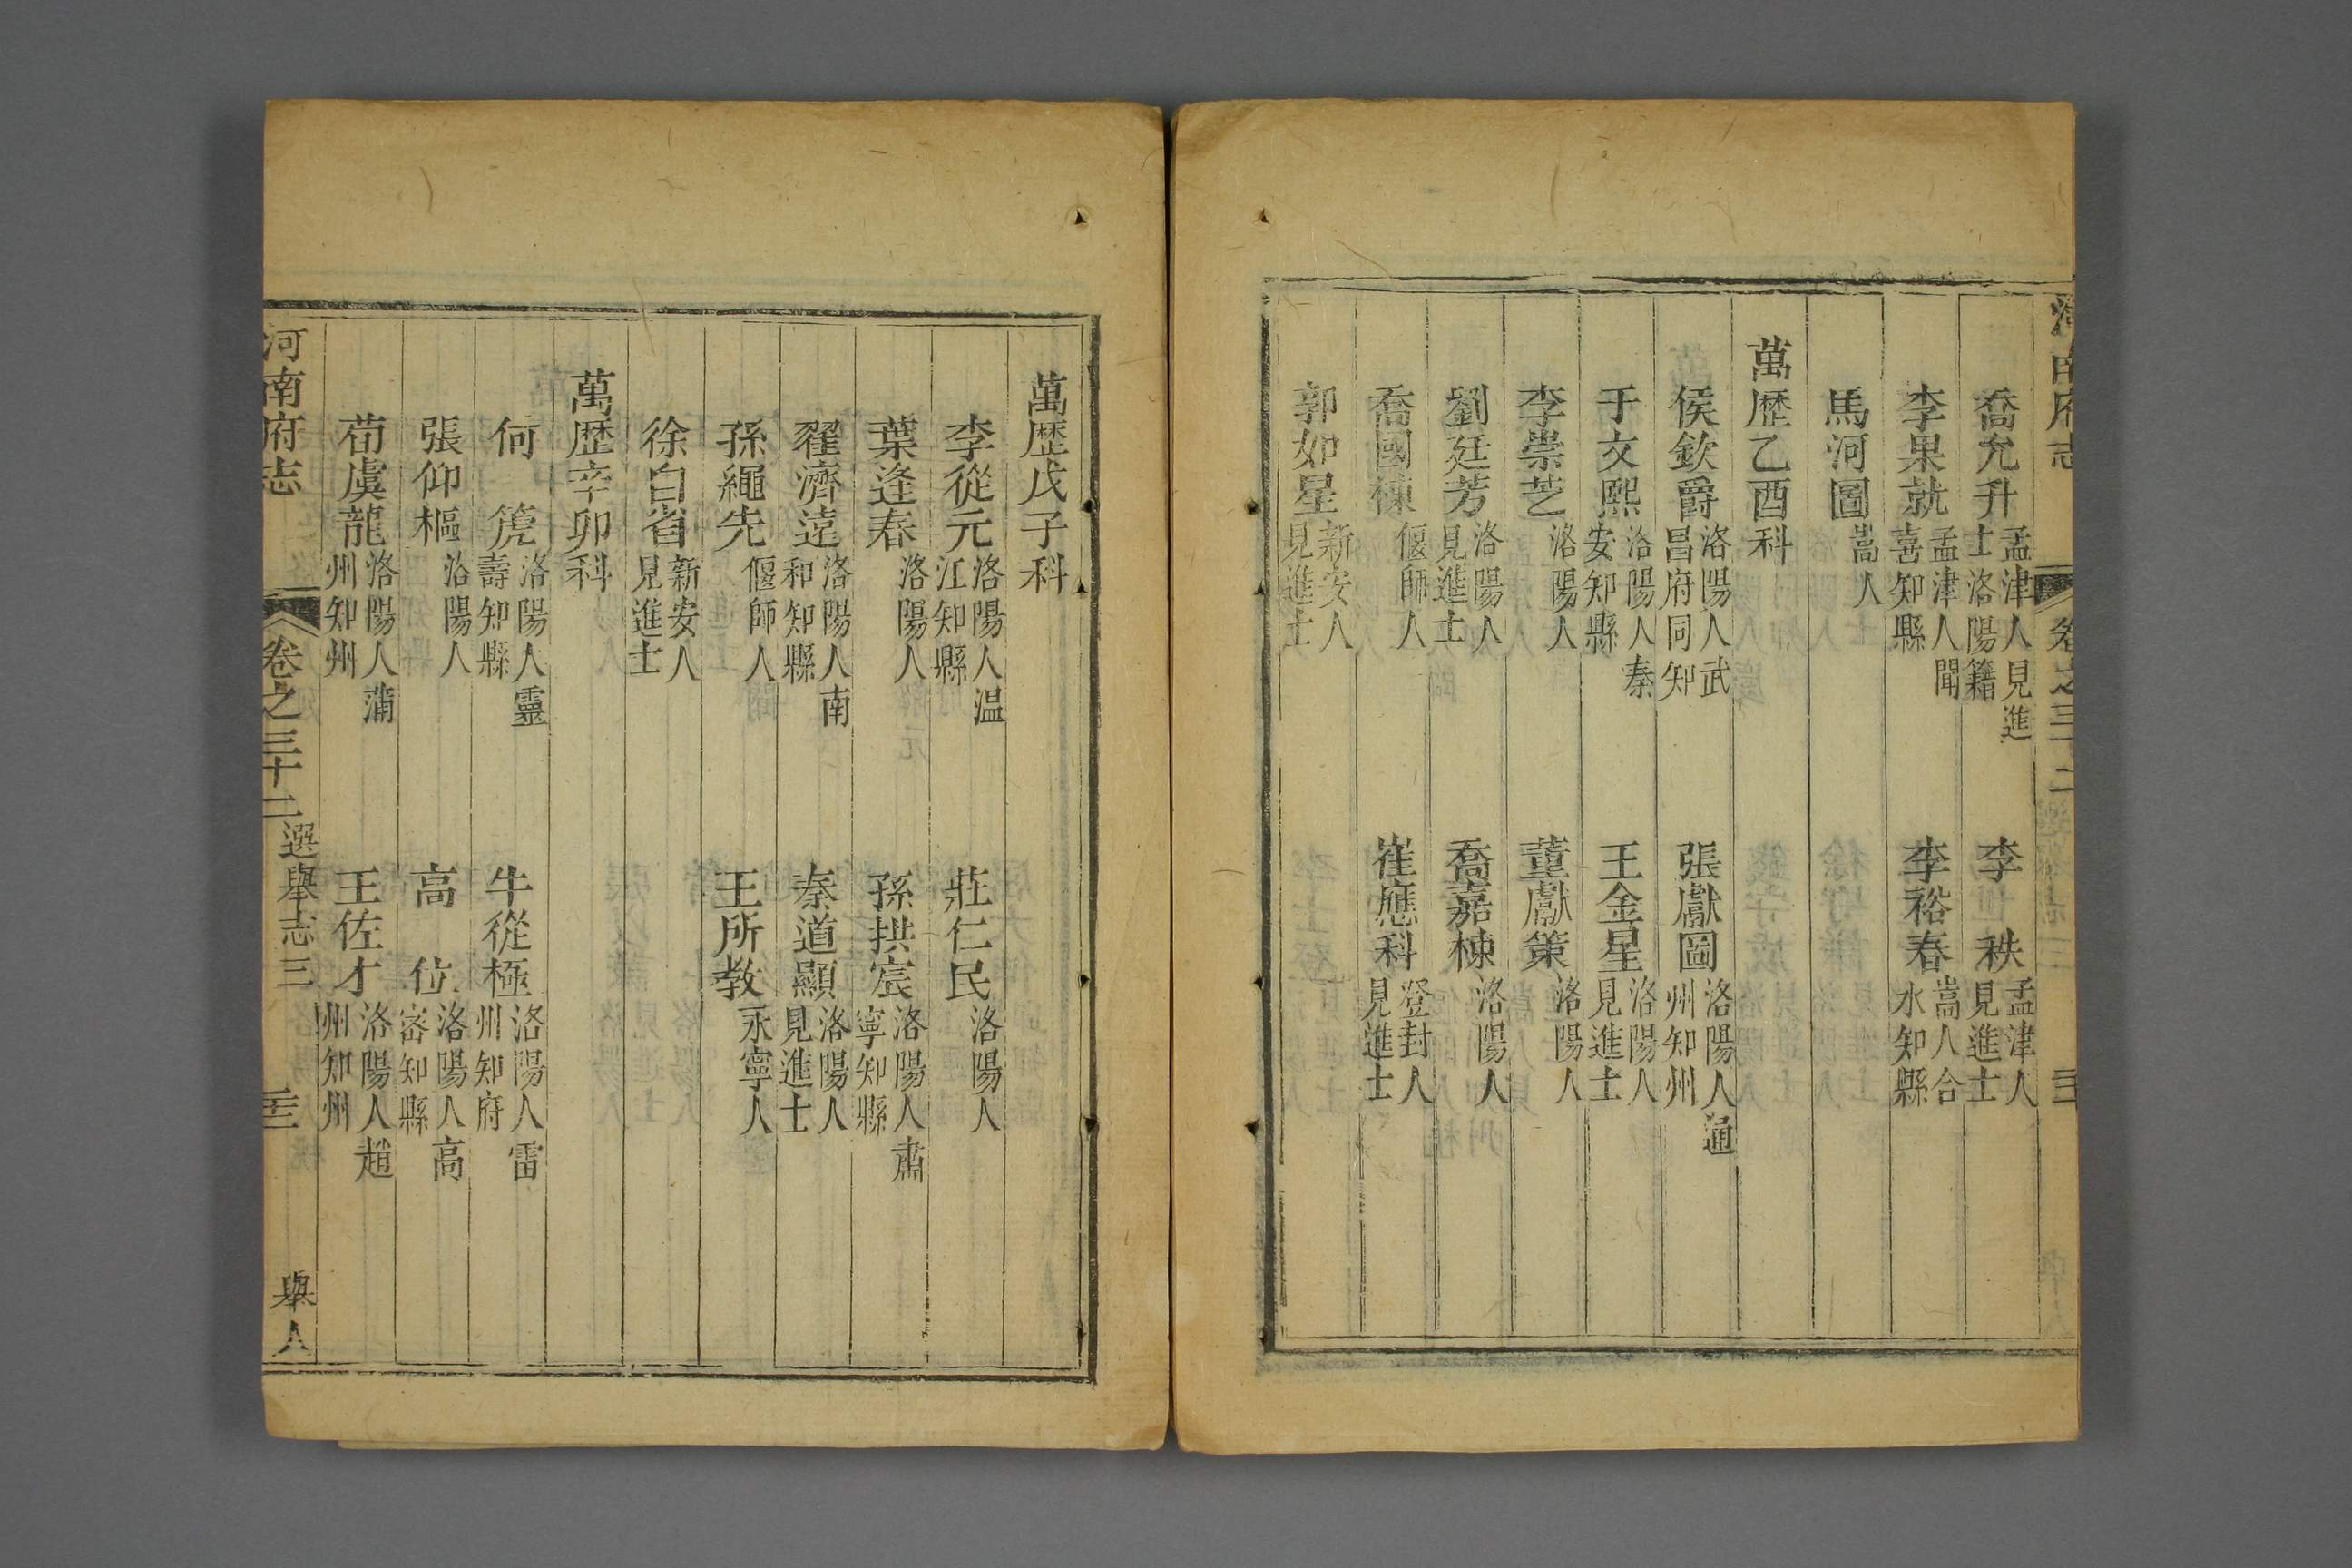 喬允升 孟津人見進士洛陽籍 李秩 孟津人見進士
李果就 孟津人聞喜知縣 李裕春 嵩人合水知縣
馬河圖 嵩人
萬歷乙酉科
侯欽爵 洛陽人武昌府同知 張獻圖 洛陽人通州知州
于文熙 洛陽人秦安知縣 王金星 洛陽人見進士
李崇芝 洛陽人 董獻策 洛陽人
劉廷芳 洛陽人見進士 喬嘉棟 洛陽人
喬國棟 偃師人 崔應科 登封人見進士
郭如星 新安人見進士
萬歷戊子科
李從元 洛陽人温江知縣 莊仁民 洛陽人
葉逢春 洛陽人 孫拱宸 洛陽人肅寧知縣
翟濟遠 洛陽人南和知縣 秦道顯 洛陽人見進士
孫繩先 偃師人 王所教 永寧人
徐自省 新安人見進士
萬歷辛卯科
何箎 洛陽人靈壽知縣 牛從極 洛陽人雷州知府
張仰樞 洛陽人 高位 洛陽人高密知縣
荀虞龍 洛陽人蒲州知州 王佐才 洛陽人趙州知州
河南府志 卷之三十二 選舉志三 舉人